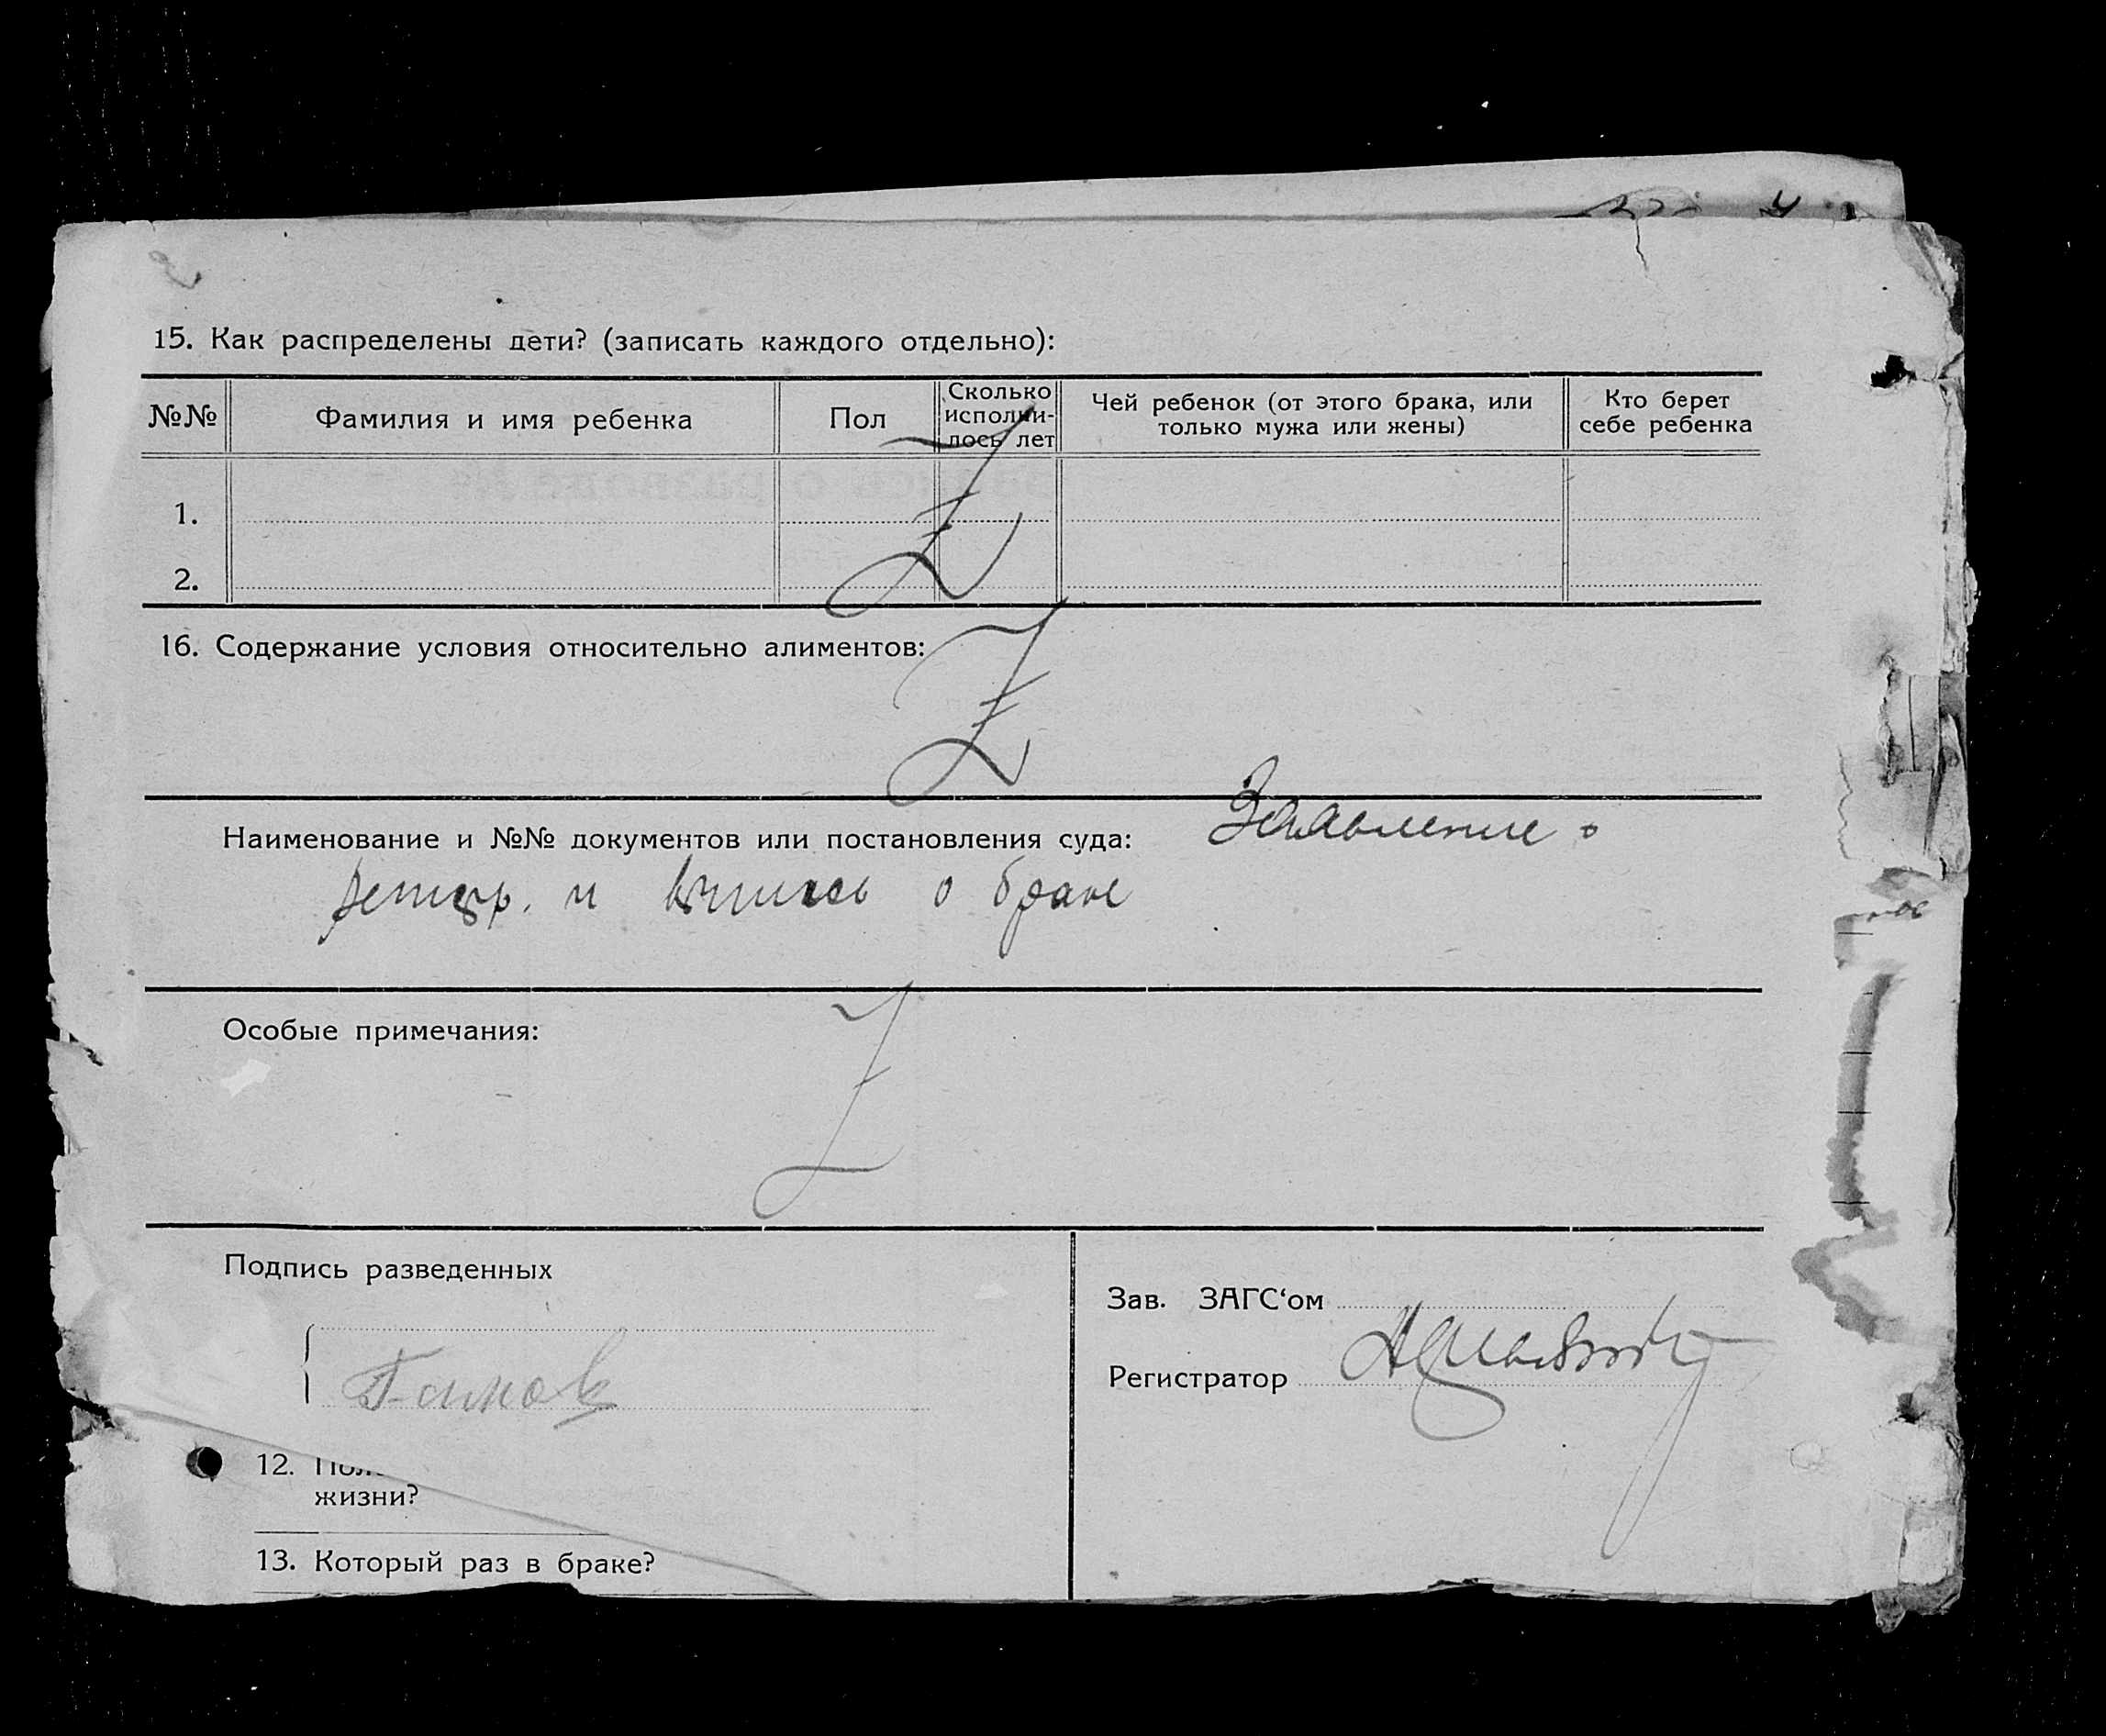 15. Как распределены дети? (записать каждого отдельно):
№№ Фамилия и имя ребенка Пол Сколько исполни-лось лет Чей ребенок (от этого брака, или только мужа или жены) Кто берет себе ребенка
1.
2.
16. Содержание условия относительно алиментов:
Наименование и №№ документов или постановления суда: Заявление о
регистр. и выпись о браке
Особые примечания:
Подпись разведенных
Зав. ЗАГС‘ом
Регистратор
12.
жизни?
13. Который раз в браке?